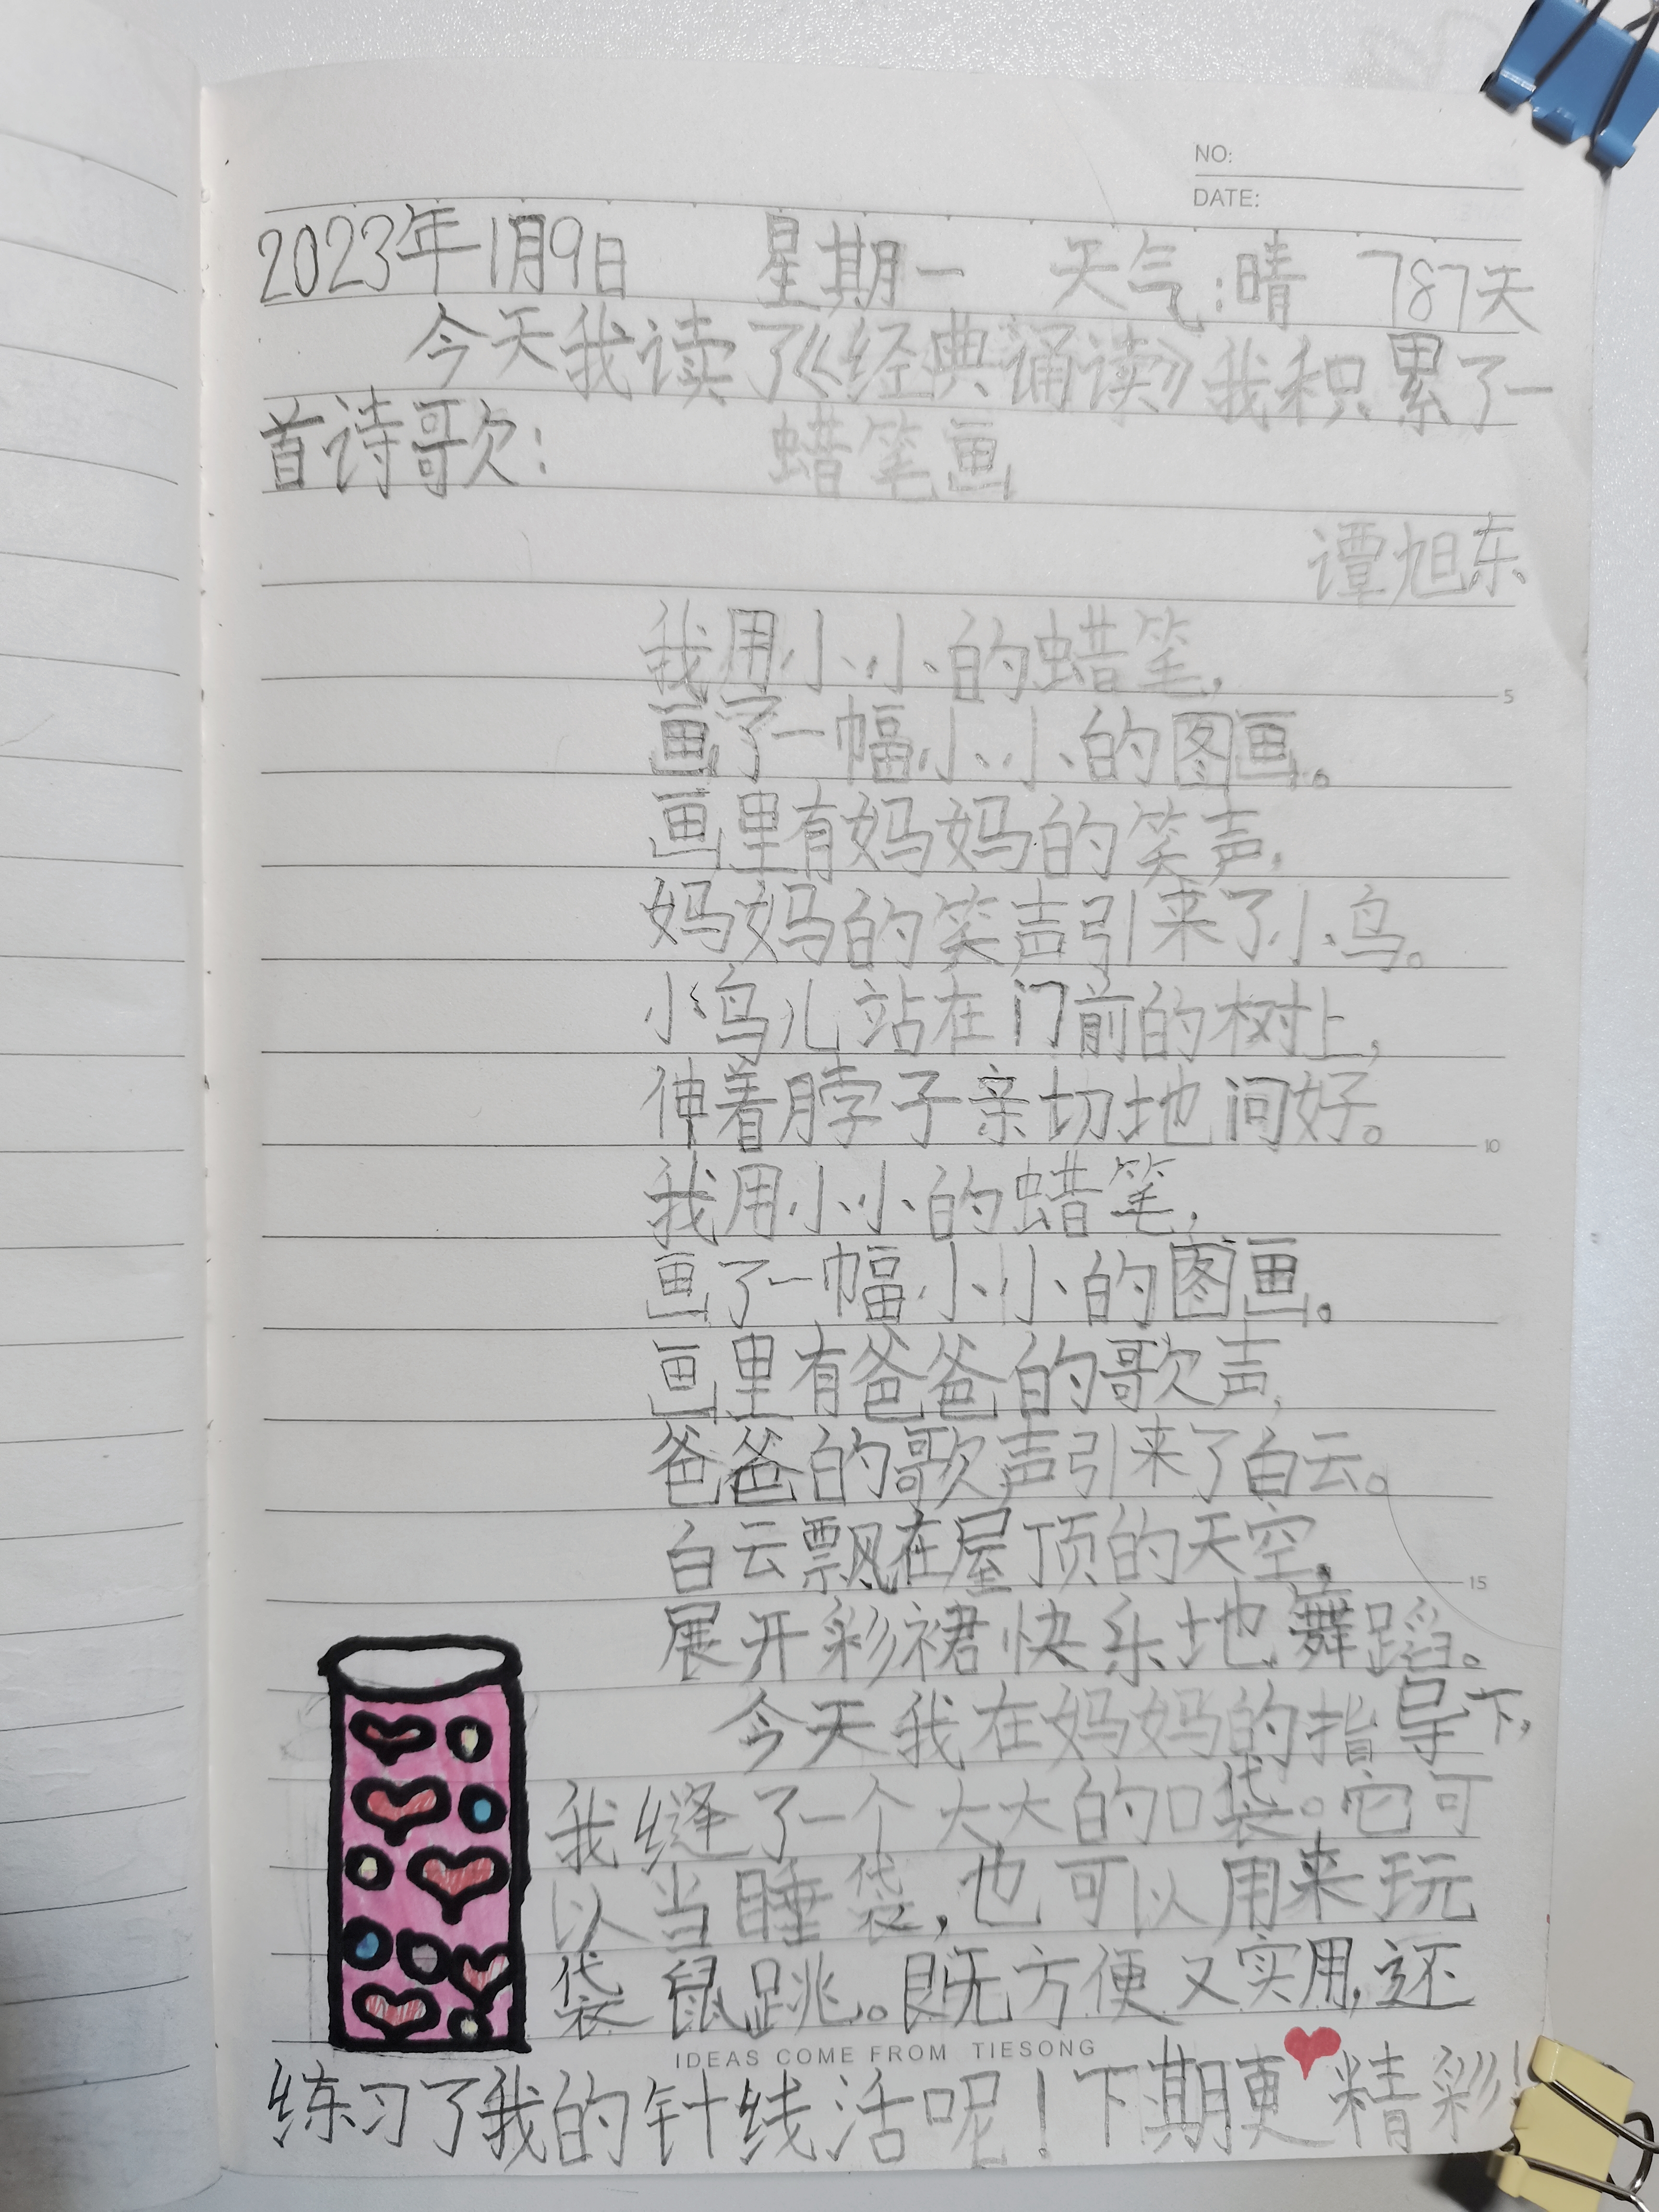 NO:
DATE:
2023年1月9日 星期一 天气:晴 787天
今天我读了《经典诵读》我积累了一
首诗歌: 蜡笔画
谭旭东
我用小小的蜡笔,
画了一幅小小的图画。
画里有妈妈的笑声,
妈妈的笑声引来了小鸟。
小鸟儿站在门前的树上,
伸着脖子亲切地问好。
我用小小的蜡笔,
画了一幅小小的图画。
画里有爸爸的歌声,
爸爸的歌声引来了白云。
白云飘在屋顶的天空,
展开彩裙快乐地舞蹈。
今天我在妈妈的指导下,
我缝了一个大大的口袋。它可
以当睡袋,也可以用来玩
袋鼠跳。既方便又实用,还
IDEAS COME FROM TIESONG
练习了我的针线活呢!下期更精彩!
5
10
15